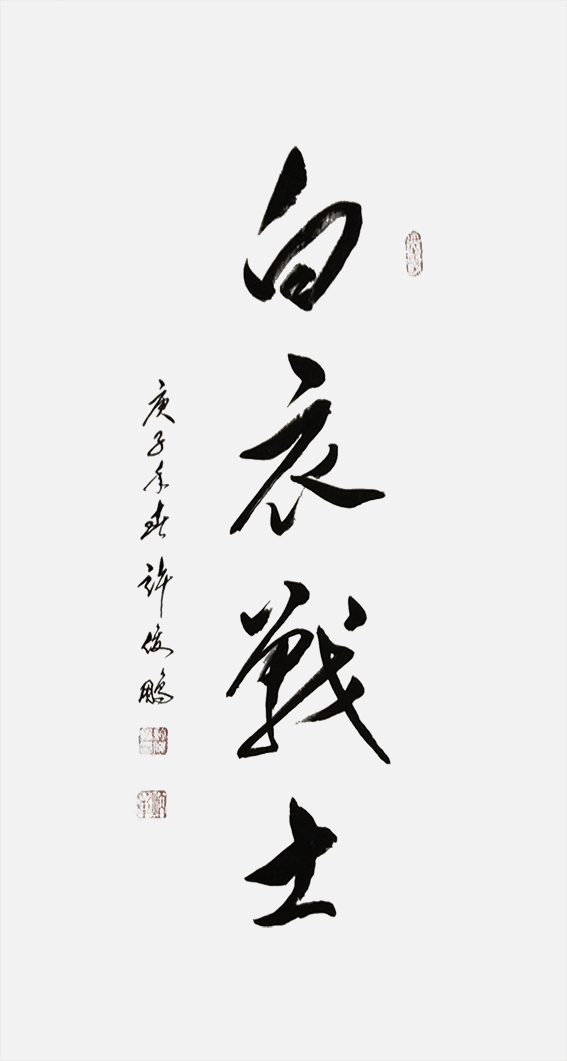 白衣戰士
庚子年春許俊鵬